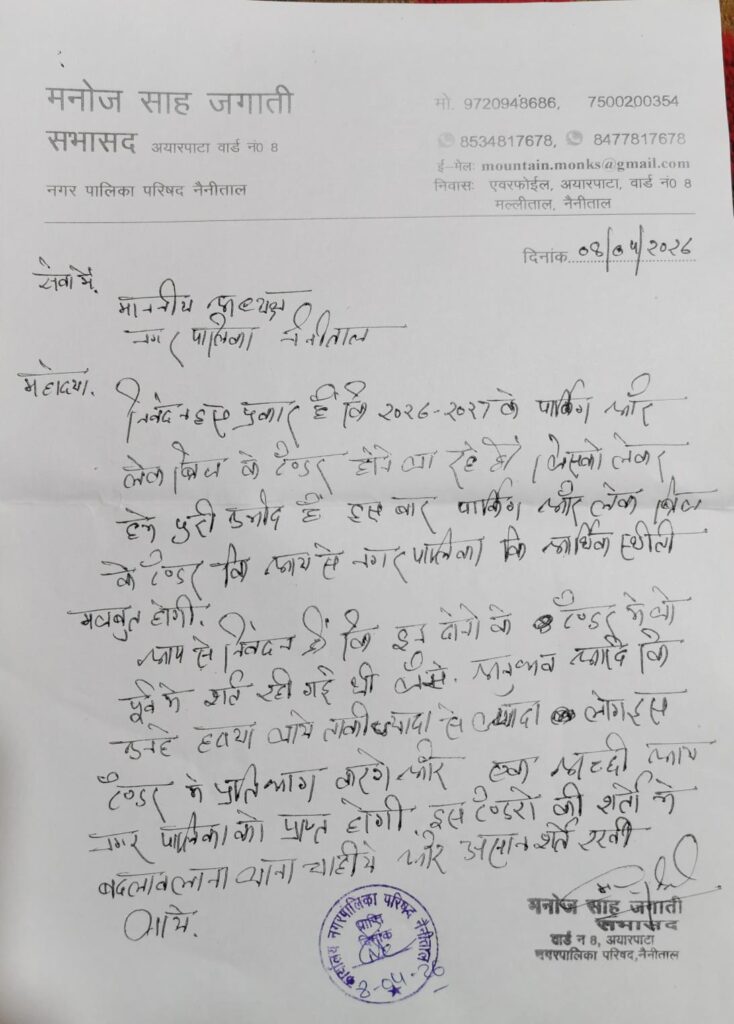 मनोज साह जगाती
सभासद अयारपाटा वार्ड नं0 8
नगर पालिका परिषद नैनीताल
मो. 9720948686, 7500200354
8534817678, 8477817678
ई–मेलः mountain.monks@gmail.com
निवासः एवरफोईल, अयारपाटा, वार्ड नं0 8
मल्लीताल, नैनीताल
दिनांक 08/04/२०२६
सेवा में,
माननीय अध्यक्ष
नगर पालिका नैनीताल
महोदया,
निवेदन इस प्रकार है कि २०२६-२०२७ के पार्किंग और
लेक ब्रिज के टैण्डर होने जा रहे है। जिसको लेकर
हमे पुरी उमीद है इस बार पार्किंग और लेक ब्रिज
के टैण्डर कि आय से नगर पालिका कि आर्थिक स्थीती
मजबुत होगी.
आप से निवेदन है कि इन दोनो के टैण्डर मे जो
पूर्व मे शर्ते रही गई थी जैसे. अनुभव आदि कि
उनहे हटाया जाये ताकी ज्यादा से ज्यादा लोग इस
टैण्डर मे प्रतिभाग करगे और एक अच्छी आय
नगर पालिका को प्राप्त होगी. इस टैण्डरो की शर्तो मे
बदलाव लाना जाना चाहीये और असान शर्ते रखी
जाये.
मनोज साह जगाती
सभासद
वार्ड न 8, अयारपाटा
नगरपालिका परिषद,नैनीताल
कार्यालय नगरपालिका परिषद नैनीताल
प्राप्ति
दिनांक
8-04-26